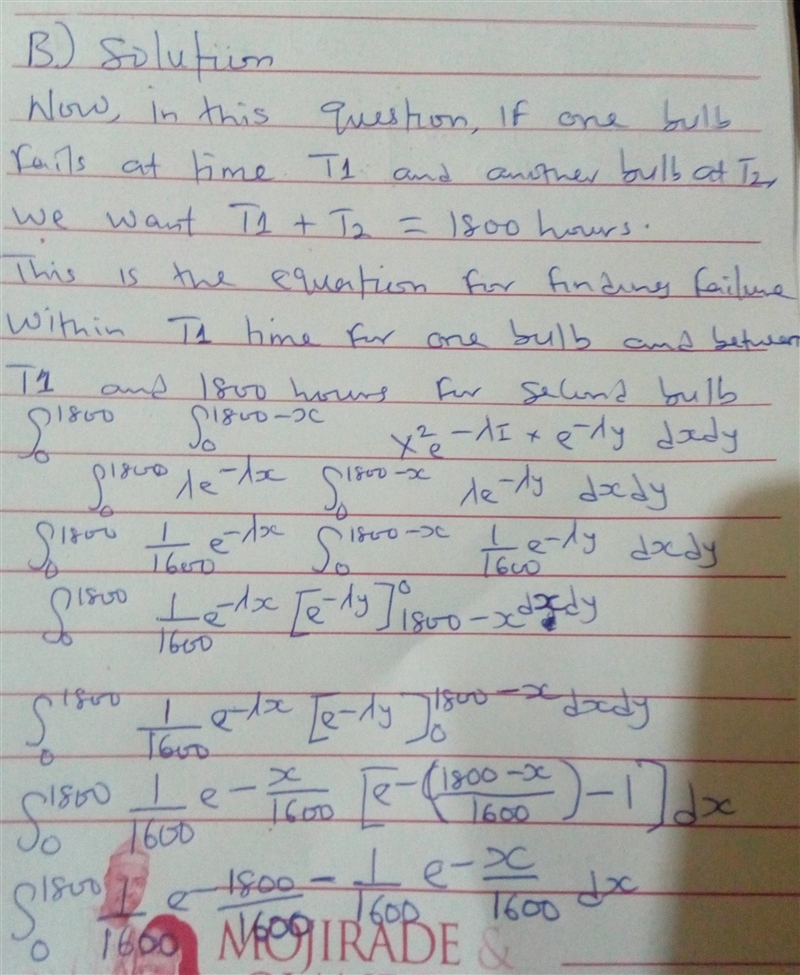 B.) Solution
Now, in this question, if one bulb
fails at time T1 and another bulb at T2,
we want T1 + T2 = 1800 hours.
This is the equation for finding failure
within T1 time for one bulb and between
T1 and 1800 hours for second bulb
∫₀¹⁸⁰⁰ ∫₀¹⁸⁰⁰⁻ˣ x²e^-λI × e^-λy dxdy
∫₀¹⁸⁰⁰ λe^-λx ∫₀¹⁸⁰⁰⁻ˣ λe^-λy dxdy
∫₀¹⁸⁰⁰ 1/1600 e^-λx ∫₀¹⁸⁰⁰⁻ˣ 1/1600 e^-λy dxdy
∫₀¹⁸⁰⁰ 1/1600 e^-λx [e^-λy]⁰₁₈₀₀₋ₓ dxdy
∫₀¹⁸⁰⁰ 1/1600 e^-λx [e^-λy]₀¹⁸⁰⁰⁻ˣ dxdy
∫₀¹⁸⁰⁰ 1/1600 e - x/1600 [e^-(1800-x/1600) - 1] dx
∫₀¹⁸⁰⁰ 1/1600 e - 1800/1600 - 1/1600 e - x/1600 dx
MOJIRADE &